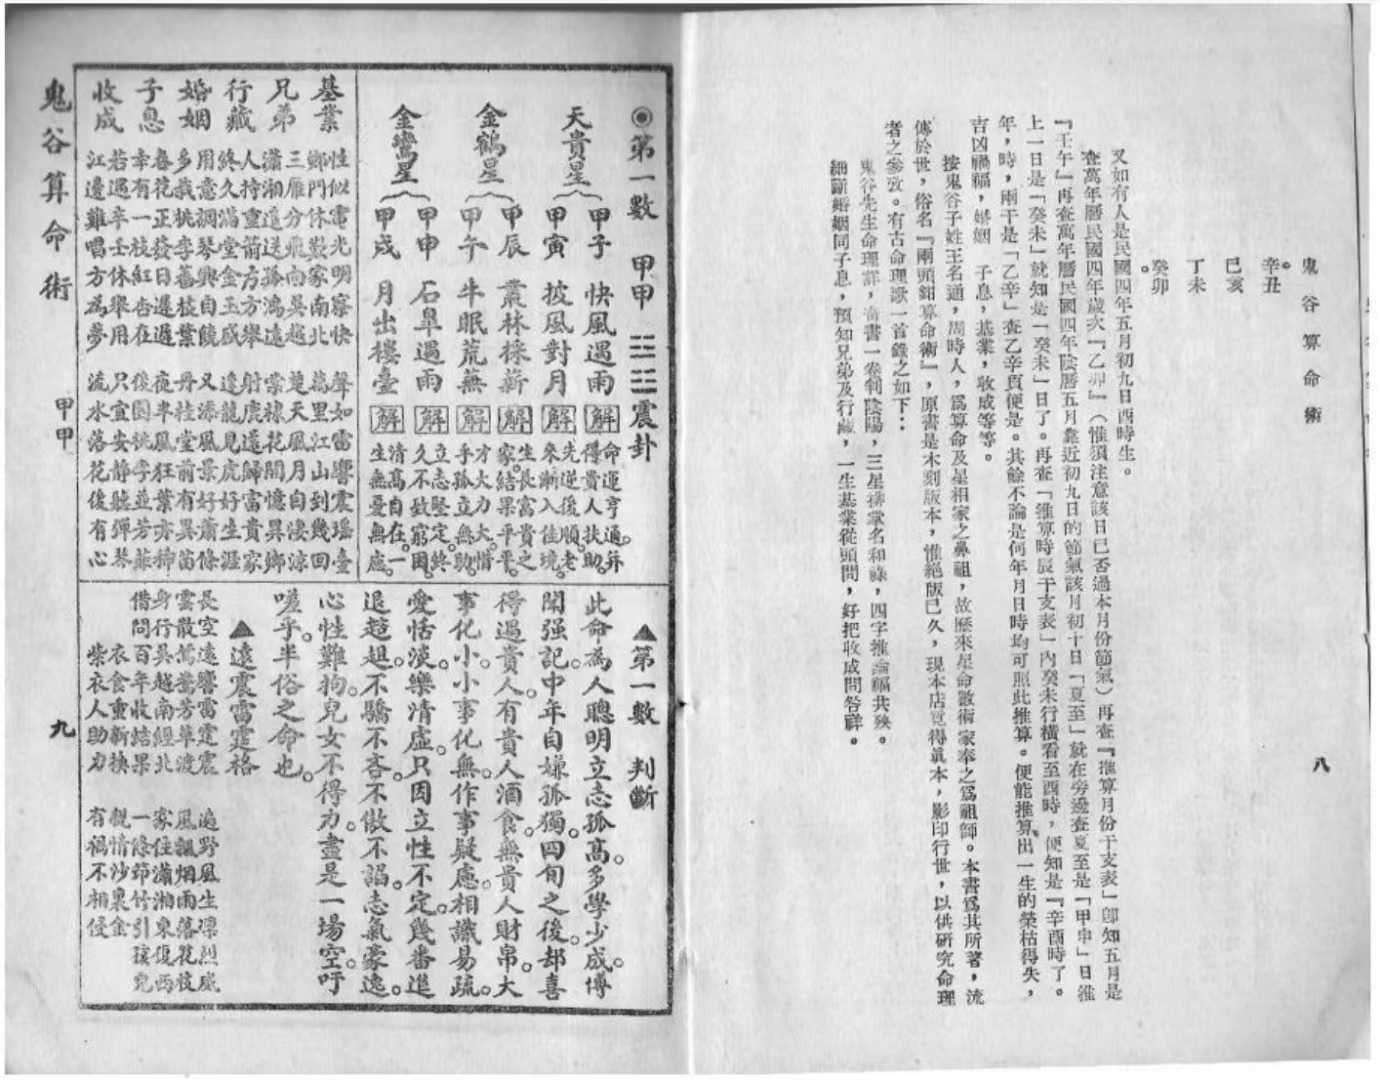 鬼谷算命術
八
辛丑。
己亥
丁未
癸卯。
又如有人是民國四年五月初九日酉時生。
查萬年曆民國四年歲次「乙卯」（惟須注意該日已否過本月份節氣）再查『推算月份干支表』卽知五月是
『壬午』再查萬年曆民國四年陰曆五月靠近初九日的節氣該月初十日「夏至」就在旁邊查夏至是「甲申」日推
上一日是「癸未」就知是「癸未」日了。再查「推算時辰干支表」內癸未行橫看至酉時，便知是『辛酉時了。
年，時，兩干是「乙辛」查乙辛頁便是。其餘不論是何年月日時均可照此推算。便能推算出一生的榮枯得失，
吉凶禍福，婚姻 子息，基業，收成等等。
按鬼谷子姓王名通，周時人，爲算命及星相家之鼻祖，故歷來星命數術家奉之爲祖師。本書爲其所著，流
傳於世，俗名『兩頭鉗算命術』，原書是木刻版本，惟絕版已久，現本店覓得眞本，影印行世，以供研究命理
者之參攷。有古命理歌一首錄之如下：
鬼谷先生命理詳，奇書一卷判陰陽，三星排掌名和祿，四字推論福共殃。
細斷婚姻同子息，預知兄弟及行藏，一生基業從頭問，好把收成問答詳。
◉第一數 甲甲 ☳☳震卦
天貴星
甲子 快風遇雨 解 命運亨通。并得貴人扶助。
甲寅 披風對月 解 先逆後順。老來漸入佳境。
金鶴星
甲辰 叢林採薪 解 生長富貴之家。結果平平。
甲午 牛眠荒蕪 解 才力大。惜手孤立無助。
金鸞星
甲申 石臯遇雨 解 立志堅定。終久不致窮困。
甲戌 月出樓臺 解 清高自在。一生無憂無慮。
基業 性似電光明察快 聲如雷響震瑤臺
鄉門休歎家南北 萬里江山到幾回
兄弟 三雁分飛南吳越 楚天風月自淒涼
瀟湘遠送孤鴻遠 棠棣花開憶異鄉
行藏 人持重箭方方舉 射鹿遠歸富貴家
終久滿堂金玉盛 逢龍見虎好生涯
婚姻 用意調琴興自饒 又添風景好蕭條
多栽桃李舊枝葉 丹桂堂前有異苗
子息 春花正發日遲遲 夜半風狂葉亦稀
幸有一枝紅杏在 後園桃李並芳菲
收成 若遇辛壬休舉用 只宜安靜聽彈琴
江邊難唱方為夢 流水落花後有心
▲第一數 判斷
此命為人聰明立志孤高。多學少成。博
聞强記。中年自嫌孤獨。四旬之後。却喜
得過貴人。有貴人酒食。無貴人財帛。大
事化小。小事化無。作事疑慮。相識易疏。
愛恬淡。樂清虛。只因立性不定。幾番進
退趑趄。不驕不吝。不倣不諂。志氣豪逸。
心性難拘。兒女不得力。盡是一場空。吁
嗟乎。半俗之命也。
▲遠震雷霆格
長空遠響雷霆震 遍野風生凜烈威
雲散鴛鴦芳草渡 風飄烟雨落花枝
身行吳越南經北 家住瀟湘東復西
借問百年收結果 一條節竹引孩兒
衣食重新換 親情沙裏金
紫衣人助力 有禍不相侵
鬼谷算命術
甲甲
九